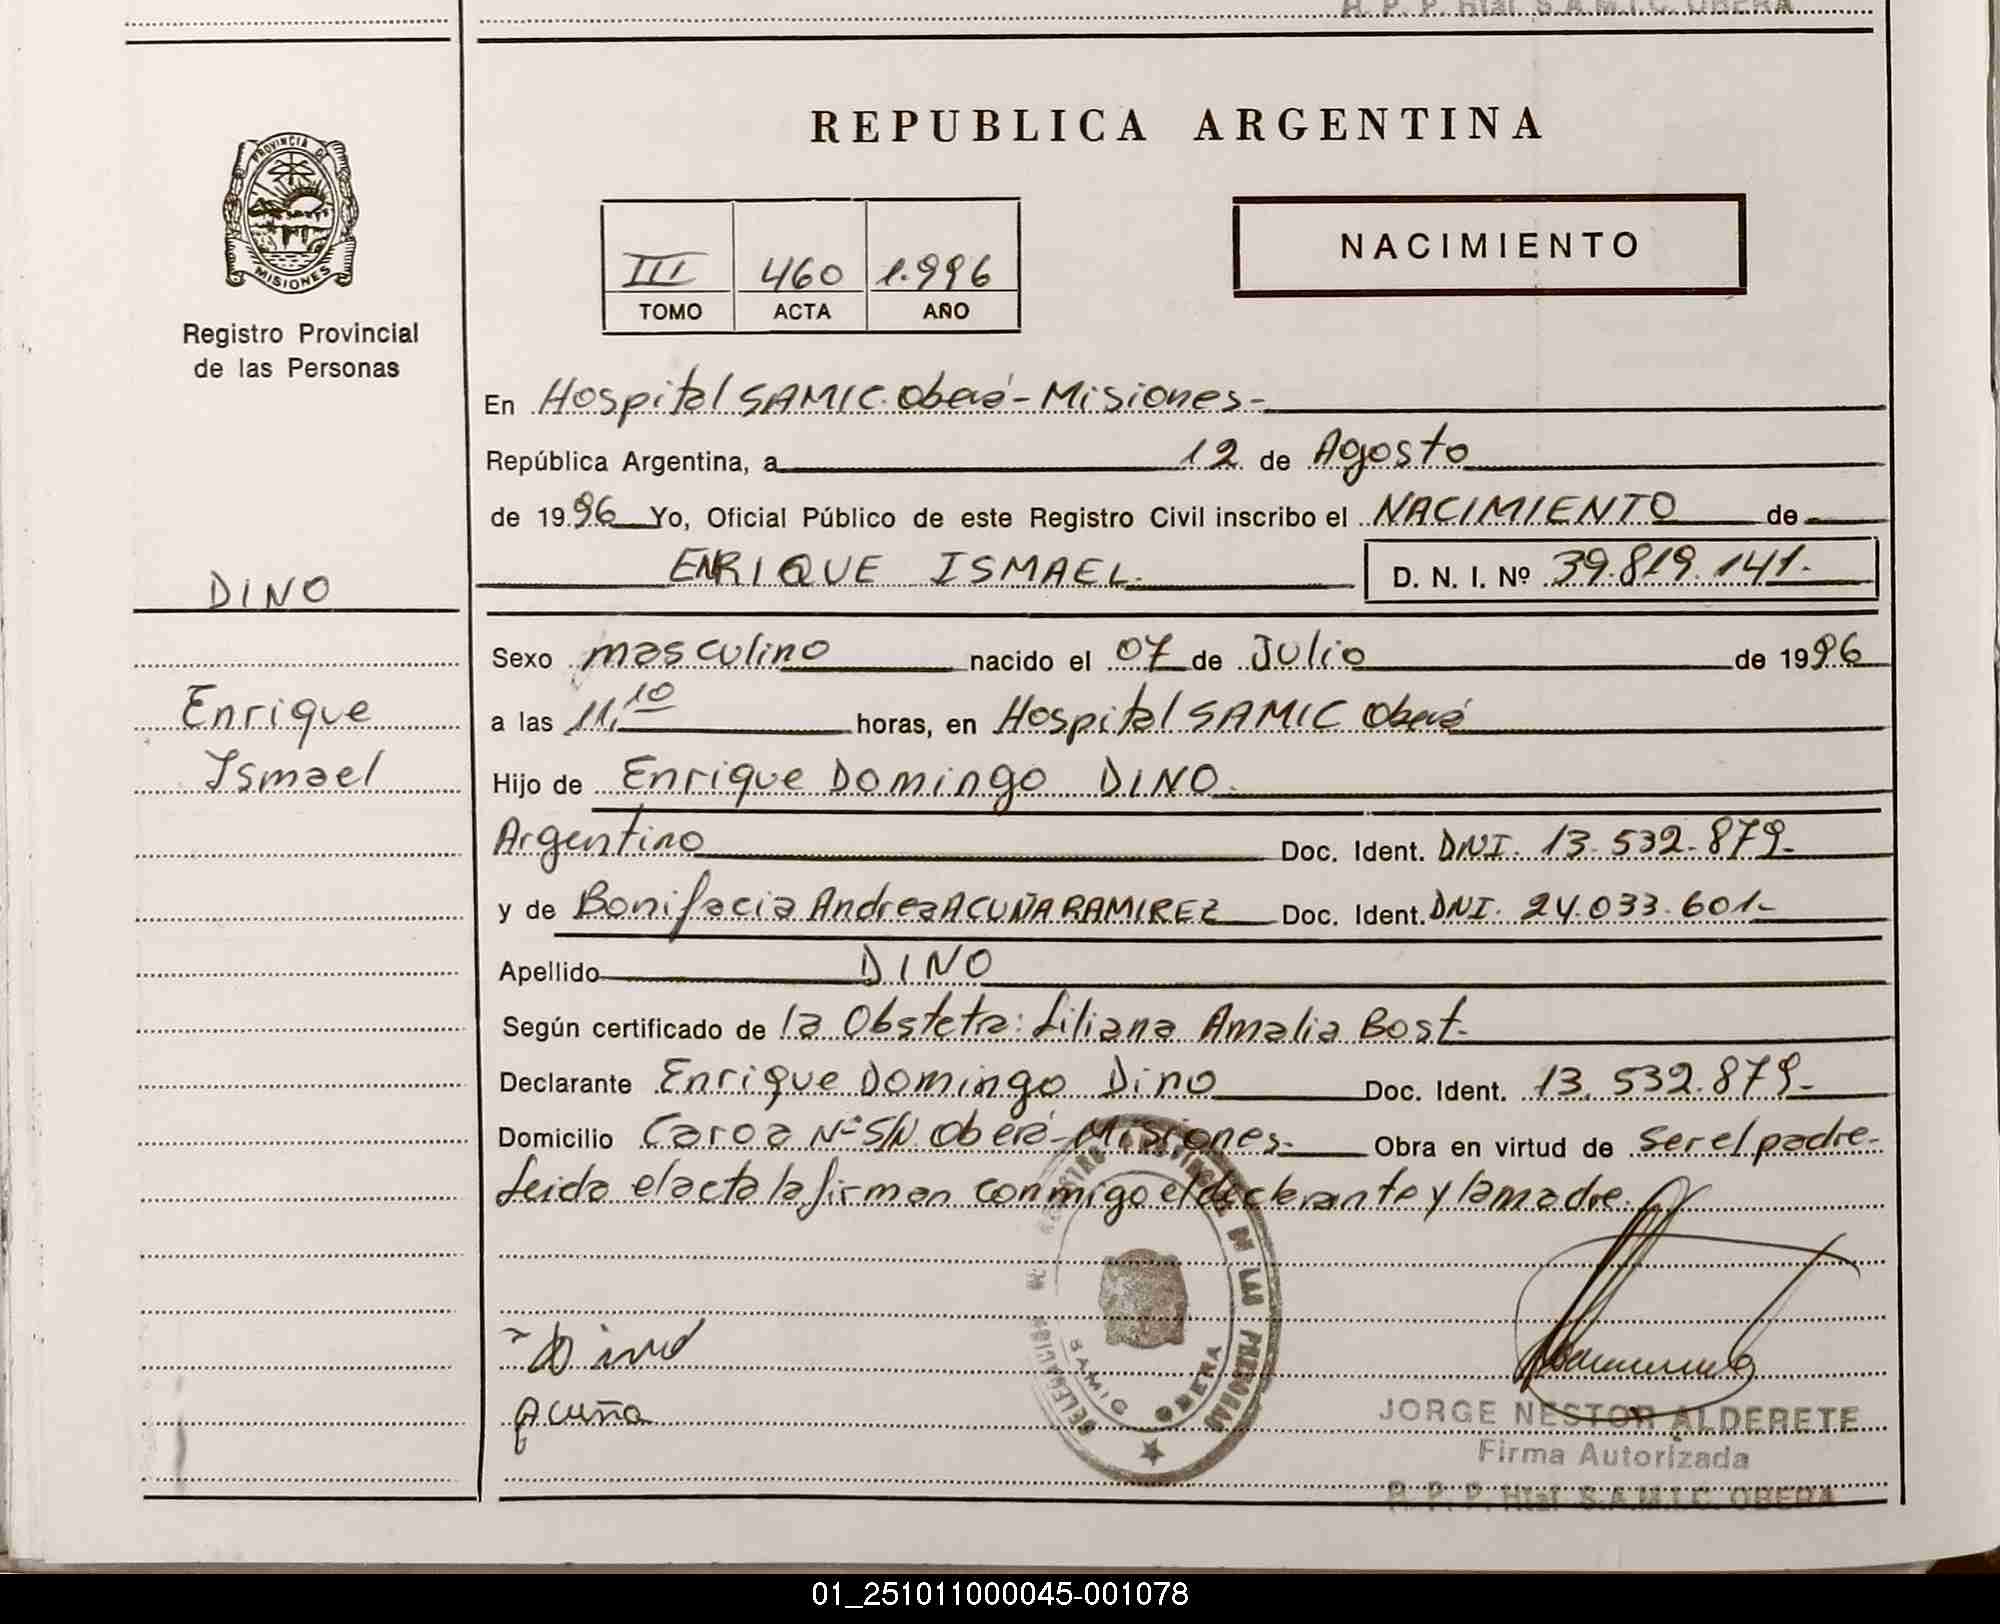 H. P. P. Htal S.A.M.I.C. OBERA
REPUBLICA ARGENTINA
PROVINCIA DE
MISIONES
Registro Provincial
de las Personas
III 460 1.996
TOMO ACTA AÑO
NACIMIENTO
En Hospital SAMIC. Oberá - Misiones -
República Argentina, a 12 de Agosto
de 1996 Yo, Oficial Público de este Registro Civil inscribo el NACIMIENTO de
ENRIQUE ISMAEL. D. N. I. Nº 39.819.141.-
DINO
Enrique
Ismael
Sexo masculino nacido el 07 de Julio de 1996
a las 11,10 horas, en Hospital SAMIC Oberá
Hijo de Enrique Domingo DINO.
Argentino Doc. Ident. DNI. 13.532.879.-
y de Bonifacia Andrea ACUÑA RAMIREZ Doc. Ident. DNI. 24.033.601.-
Apellido DINO
Según certificado de la Obstetra: Liliana Amalia Bost.-
Declarante Enrique Domingo Dino Doc. Ident. 13.532.879.-
Domicilio Caroa Nº S/N. Oberá - Misiones.- Obra en virtud de ser el padre.-
Leida el acta la firman conmigo el declarante y la madre.
Dino
Acuña
REGISTRO PROVINCIAL DE LAS PERSONAS
DELEGACION
SAMIC OBERA
JORGE NESTOR ALDERETE
Firma Autorizada
R. P. P. Htal S.A.M.I.C. OBERA
01_251011000045-001078